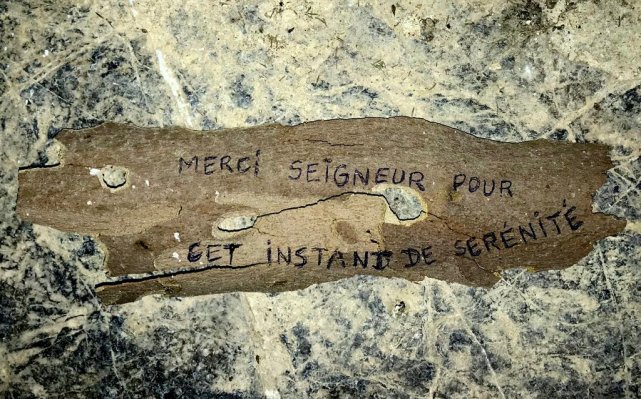 MERCi SEïGNEUR POUR
CET iNSTANT DE SERÉNiTÉ